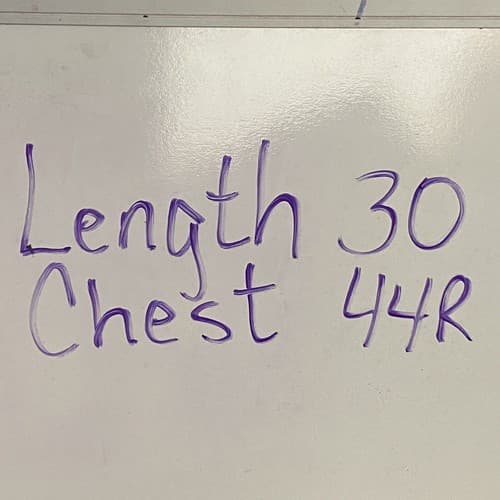 Length 30
Chest 44R